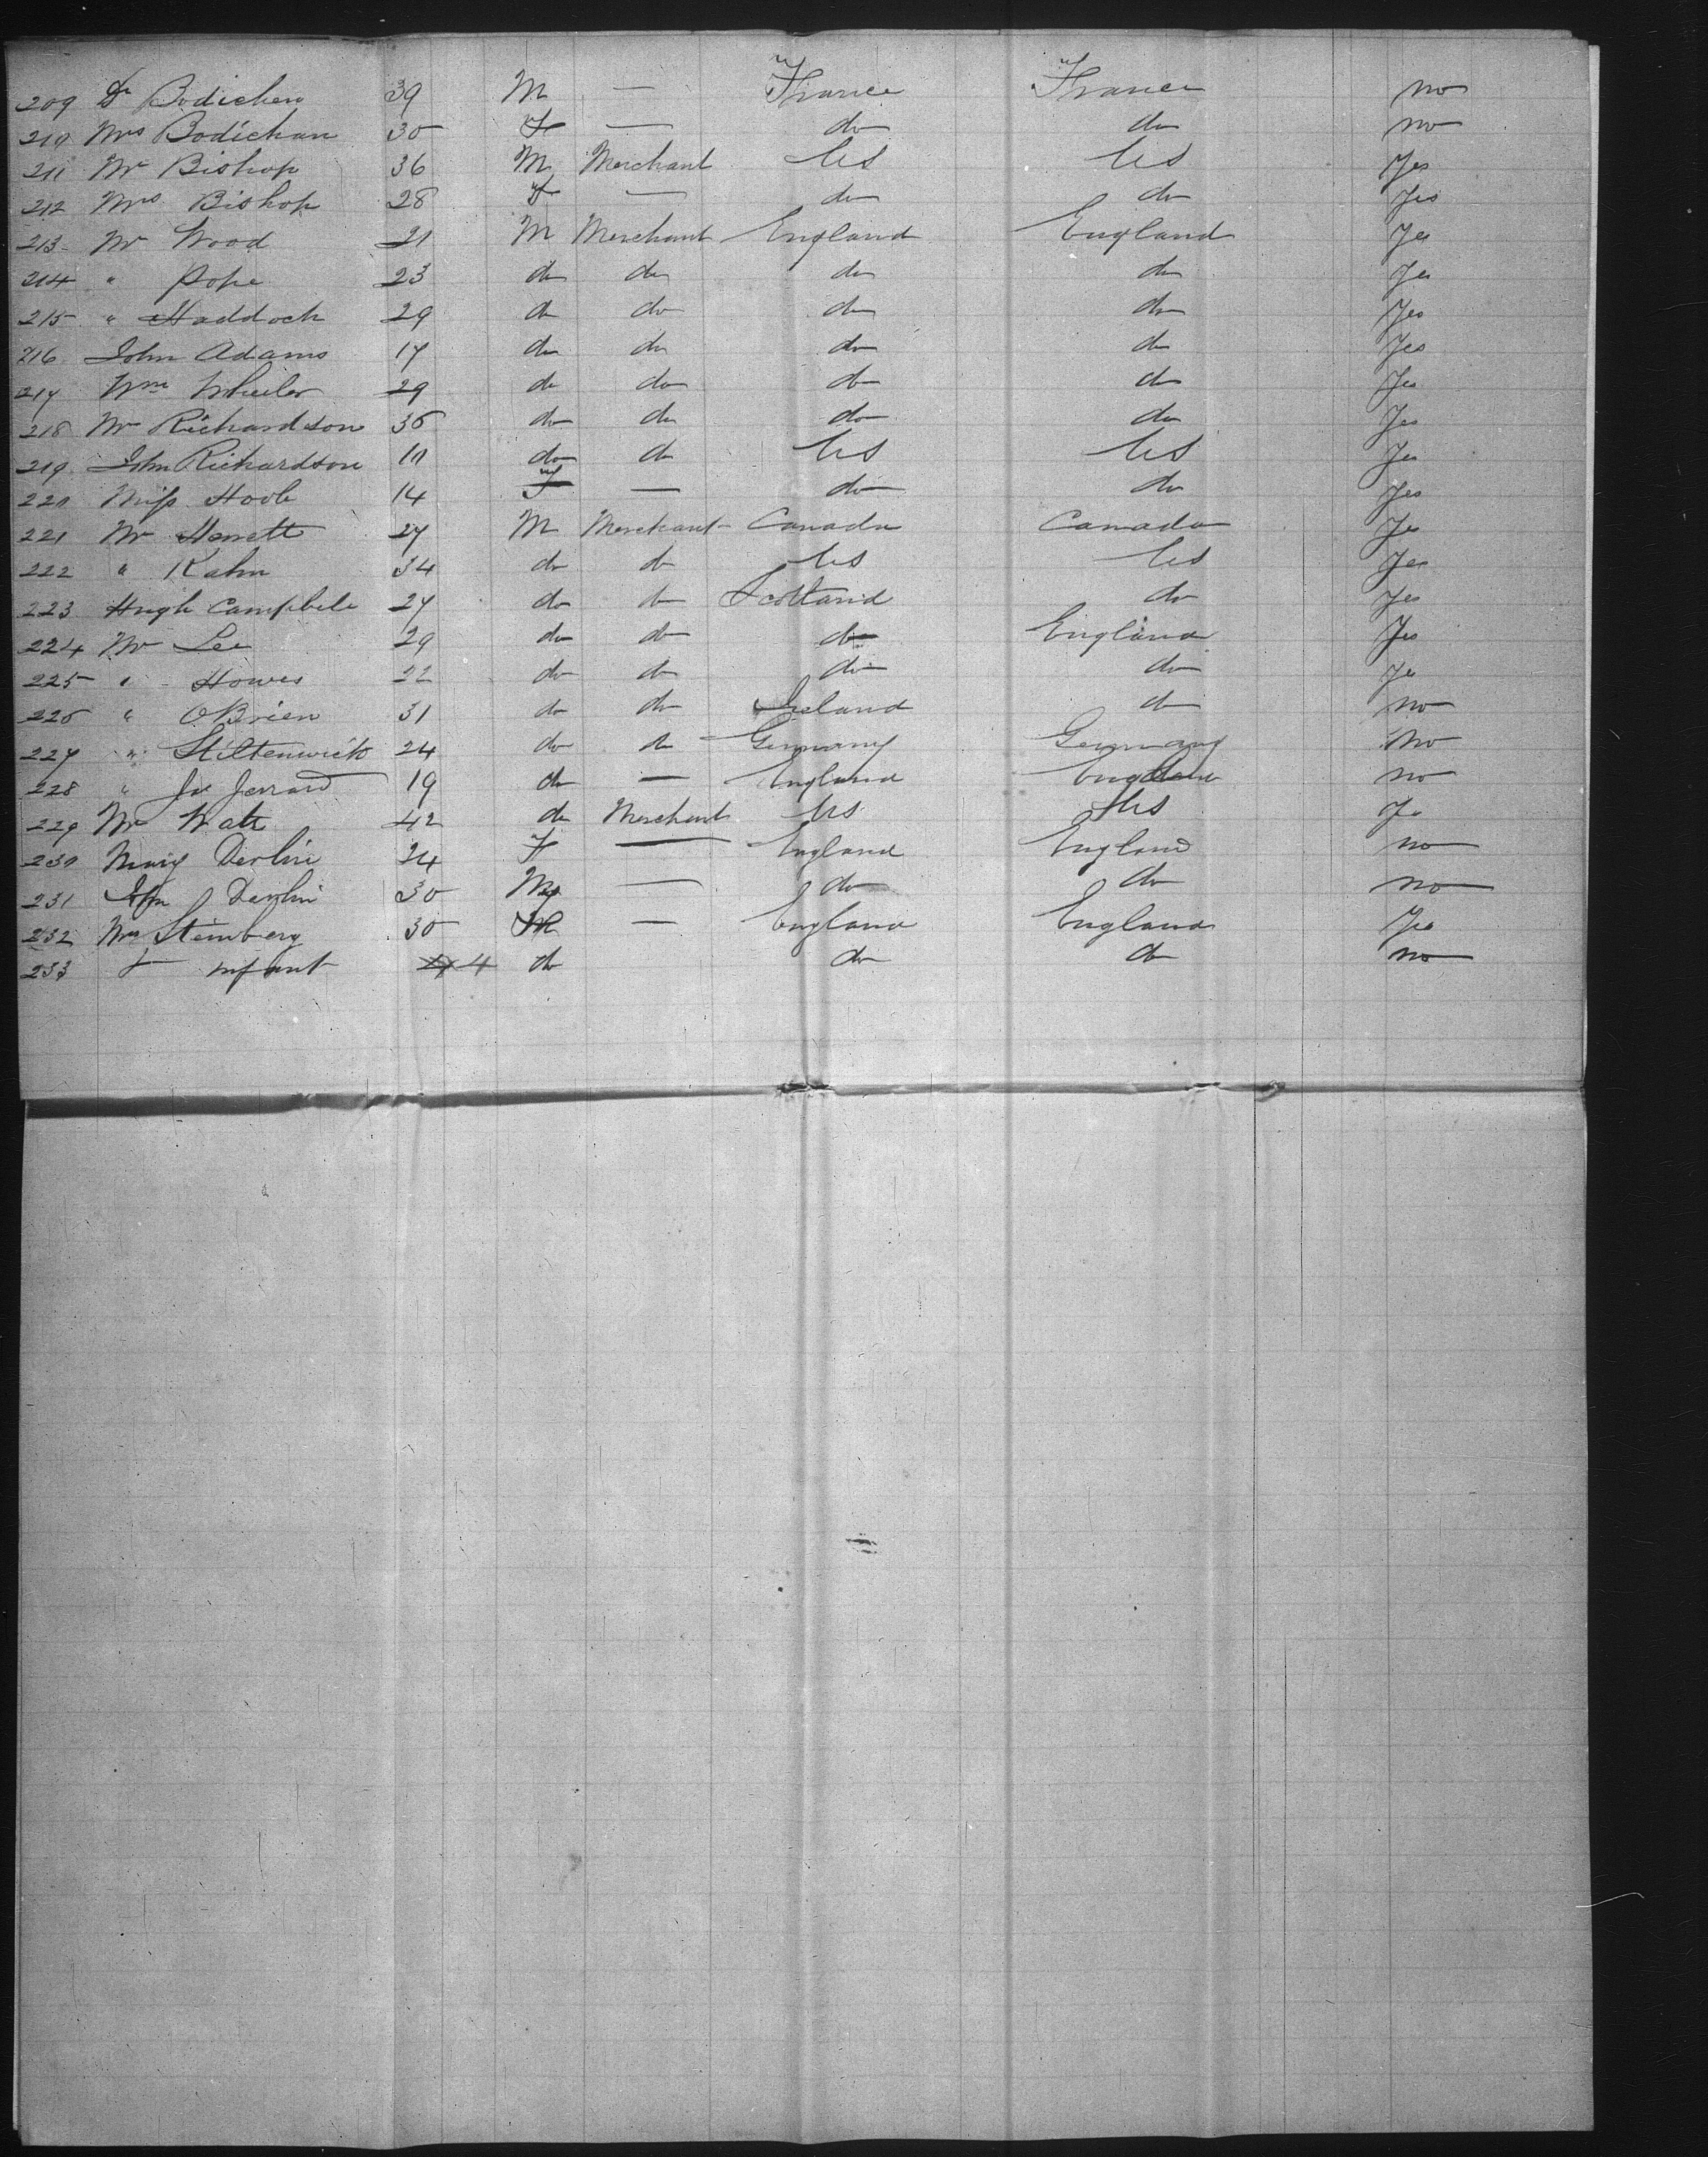 209 Dr Bodichen 39 M — France France no
210 Mrs Bodichan 30 F — do do no
211 Mr Bishop 36 M Merchant US US Yes
212 Mrs Bishop 28 F — do do Yes
213 Mr Wood 21 M Merchant England England Yes
214 " Pope 23 do do do do Yes
215 " Haddock 29 do do do do Yes
216 John Adams 17 do do do do Yes
217 Wm Wheeler 29 do do do do Yes
218 Mr Richardson 36 do do do do Yes
219 John Richardson 10 do do US US Yes
220 Miss Hoole 14 F — do do Yes
221 Mr 27 M Merchant Canada Canada Yes
222 " Kahn 34 do do US US Yes
223 Hugh Campbell 27 do do Scotland do Yes
224 Mr Lee 29 do do do England Yes
225 " Howes 22 do do do do Yes
226 " OBrien 31 do do Ireland do no
227 " 24 do do Germany Germany no
228 " Jerrard 19 do — England England no
229 Mr 42 do Merchant US US Yes
230 Mary Devlin 24 F — England England no
231 Devlin 30 M — do do no
232 Mrs Steinberg 30 — England England Yes
233 + infant 4 do do do no